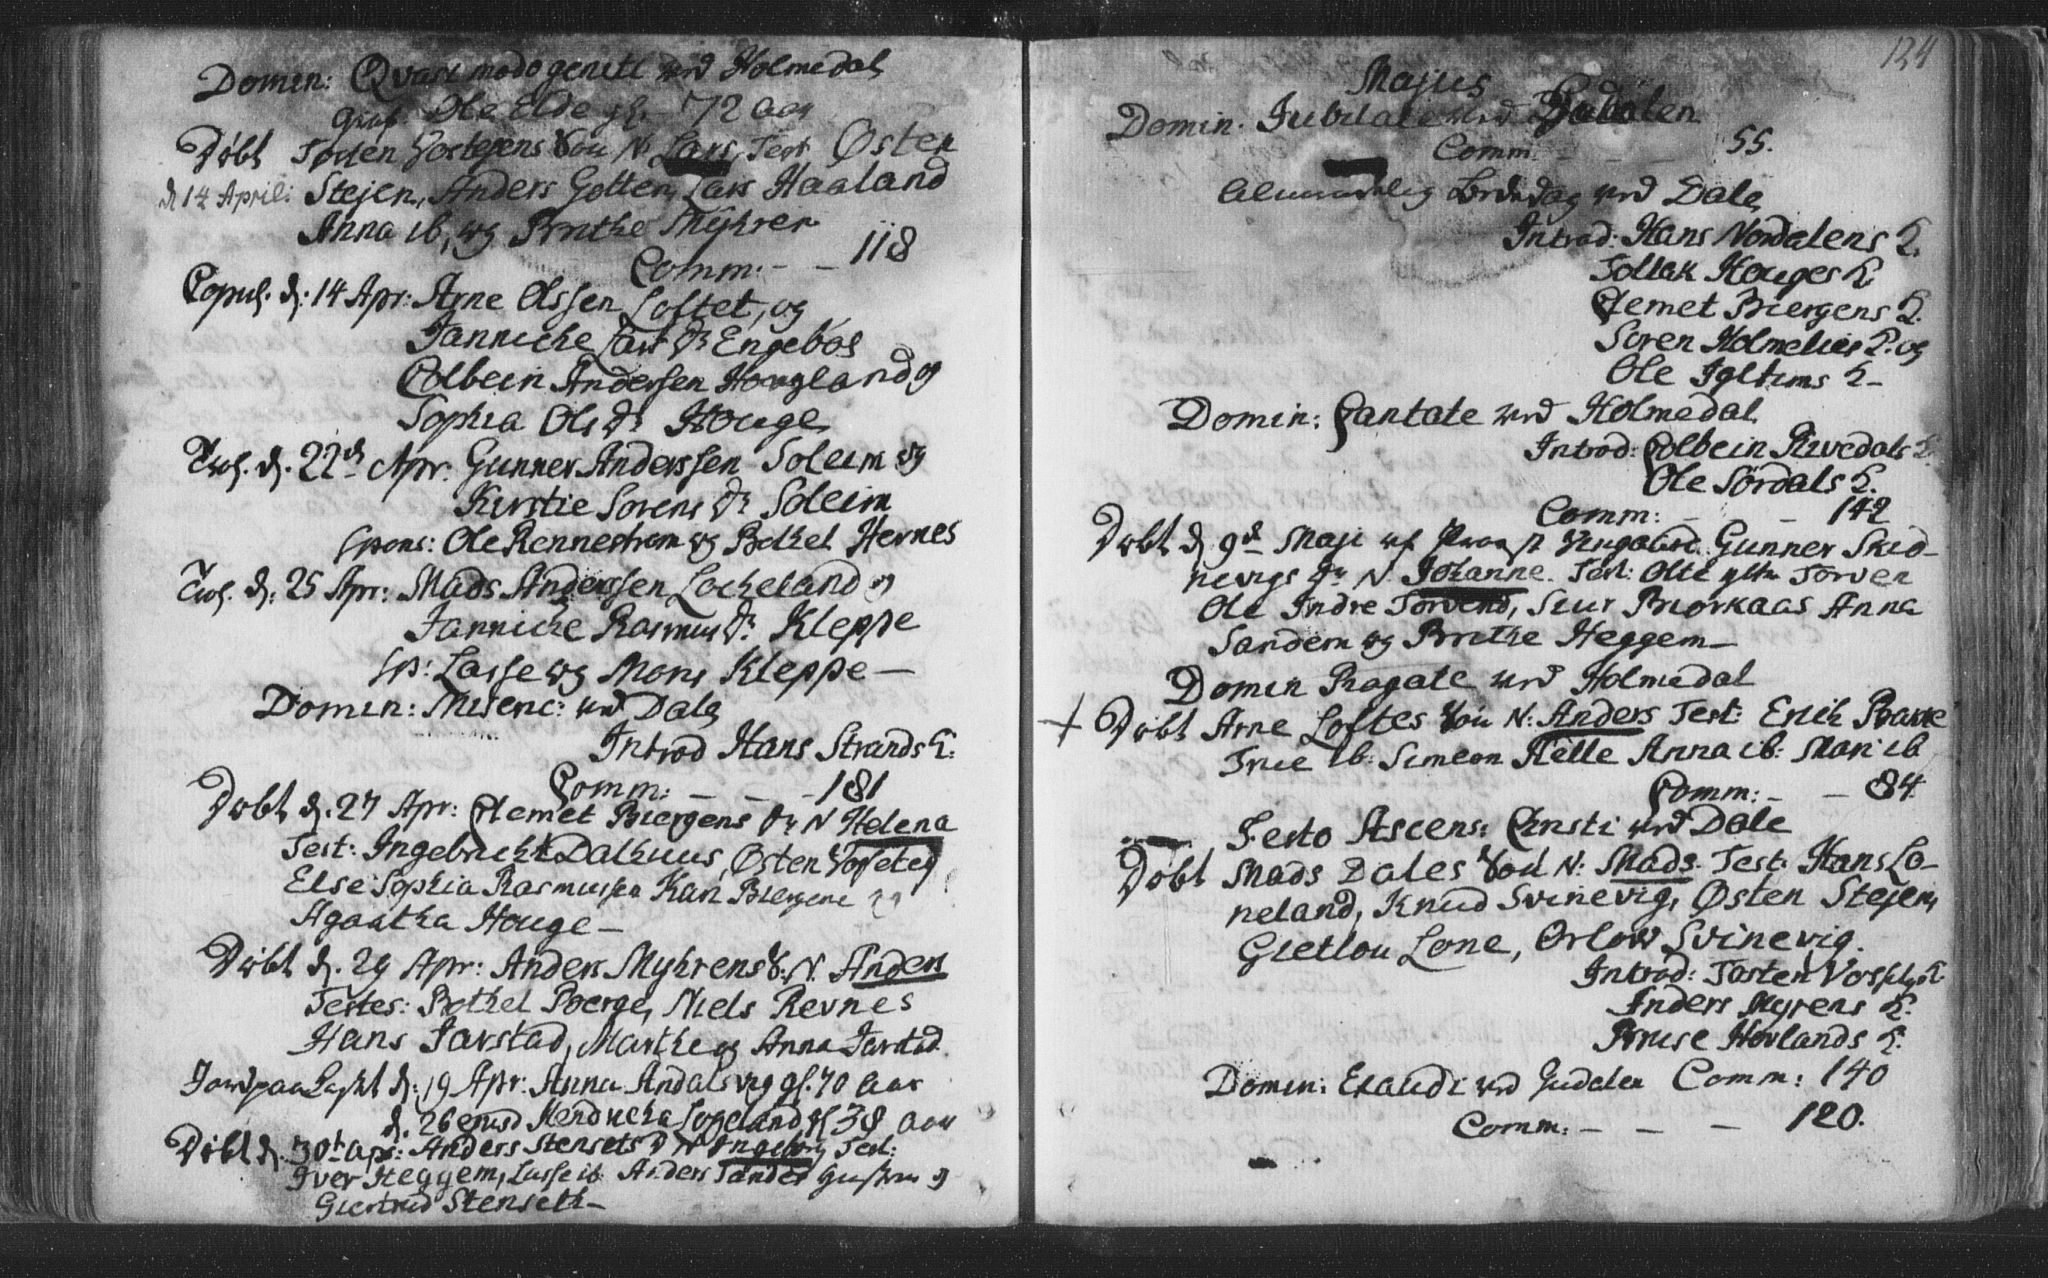 Domin: Qvasi modo geniti ved Holmedal
Grav. Ole Elde gl. 72 aar
Døbt Tosten Vosetejens Søn N. Lars, Test Østen
d 14 April: Stejen, Anders Gotten, Lars Haaland
Anna ib, og Brithe Myhren
Comm: - - 118
Copul. d. 14 Apr: Arne Olssen Loftet, og
Jannicke Lars Dr Engebøs
Colbein Andersen Hougland og
Sophia Ols Dr Houge
Trol. d. 22d Apr. Gunner Anderssen Soleim og
Kirstie Sorens Dr Soleim
Spons: Ole Rennestrøm og Bothel Hernes
Trol. d. 25 Apr: Mads Anderssen Locheland og
Jannicke Rasmus Dr. Kleppe
Sp: Lasse og Mons Kleppe
Domin: Miseric: ved Dale
Introd Hans Strands K.
Comm: - - - 181
Døbt d. 27 Apr: Clemet Biergens Dr N Helena
Test: Ingebricht Dalhuus, Østen Vossetej
Else Sophia Rasmussen Kari Biergene
Agaatha Houge
Døbt d. 29 Apr: Anders Myhrens S. N. Anders
Testes: Bothel Berge, Niels Revnes
Hans Jarstad, Marthe og Anna Jarstad
Jordpaakast d: 19 Apr: Anna Andalsvig gl. 70 aar
d. 26 ejusd Hendricha Lopeland gl 38 aar
Døbt d. 30t apr: Anders Stensets D N Ingeborg Test:
Iver Heggem, Lasse ib Anders Tander og
Giertrud Stenseth
124
Majus
Domin: Jubilate ved Gudalen
Comm: - - - 55.
Almindelig Bededag ved Dale
Introd: Hans Nordalens K.
Tollak Houges K
Clemet Biergens K.
Soren Holmelies K. og
Ole Igltims K
Domin: Cantate ved Holmedal
Introd: Colbein Rivedals K.
Ole Sørdals K.
Comm: - - 142
Døbt d 9d Maji af Gunner Skid-
nevigs Dr N Johanne. Test: Torven
Ole Indre Torvend, Siur Biorkaas Anna
Sandem og Brithe Heggem
Domin Rogate ved Holmedal
Døbt Arne Loftes Søn N: Anders Test: Erich Barre
Trie ib: Simeon Helle Anna ib: Mari ib
Comm: - - 84.
Festo Ascens: Christi ved Dale
Døbt Mads Dales Søn N: Mads. Test: Hans Lo-
neland, Knud Svinevig, Østen Stejen,
Gietlou Lone, Orlow Svinevig.
Introd: Tosten K.
Anders Myrens K.
Bruse Hovlands K.
Domin: Exaudi ved Gudalen Comm: 140
Comm: - - - 120.